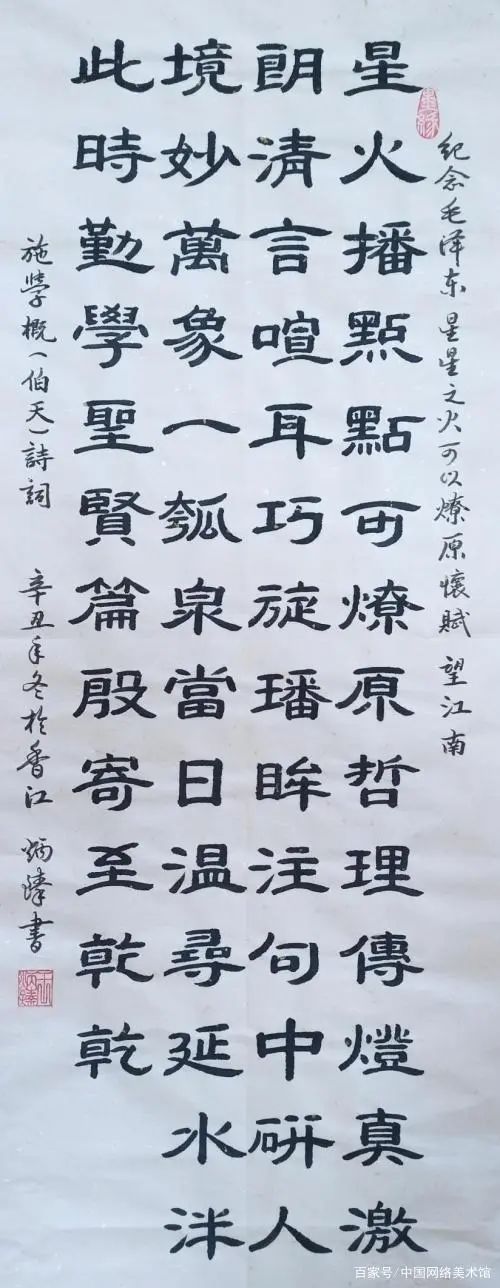 墨緣
纪念毛泽东 星星之火可以燎原懷賦 望江南
星火播點點可燎原哲理傳燈真激
朗清言喧耳巧旋璠眸注句中研人
境妙萬象一瓠泉當日温尋延水泮
此時勤學聖賢篇殷寄至乾乾
施學概（伯天）詩詞 辛丑年冬於香江 炳臻書
百家号/中国网络美术馆